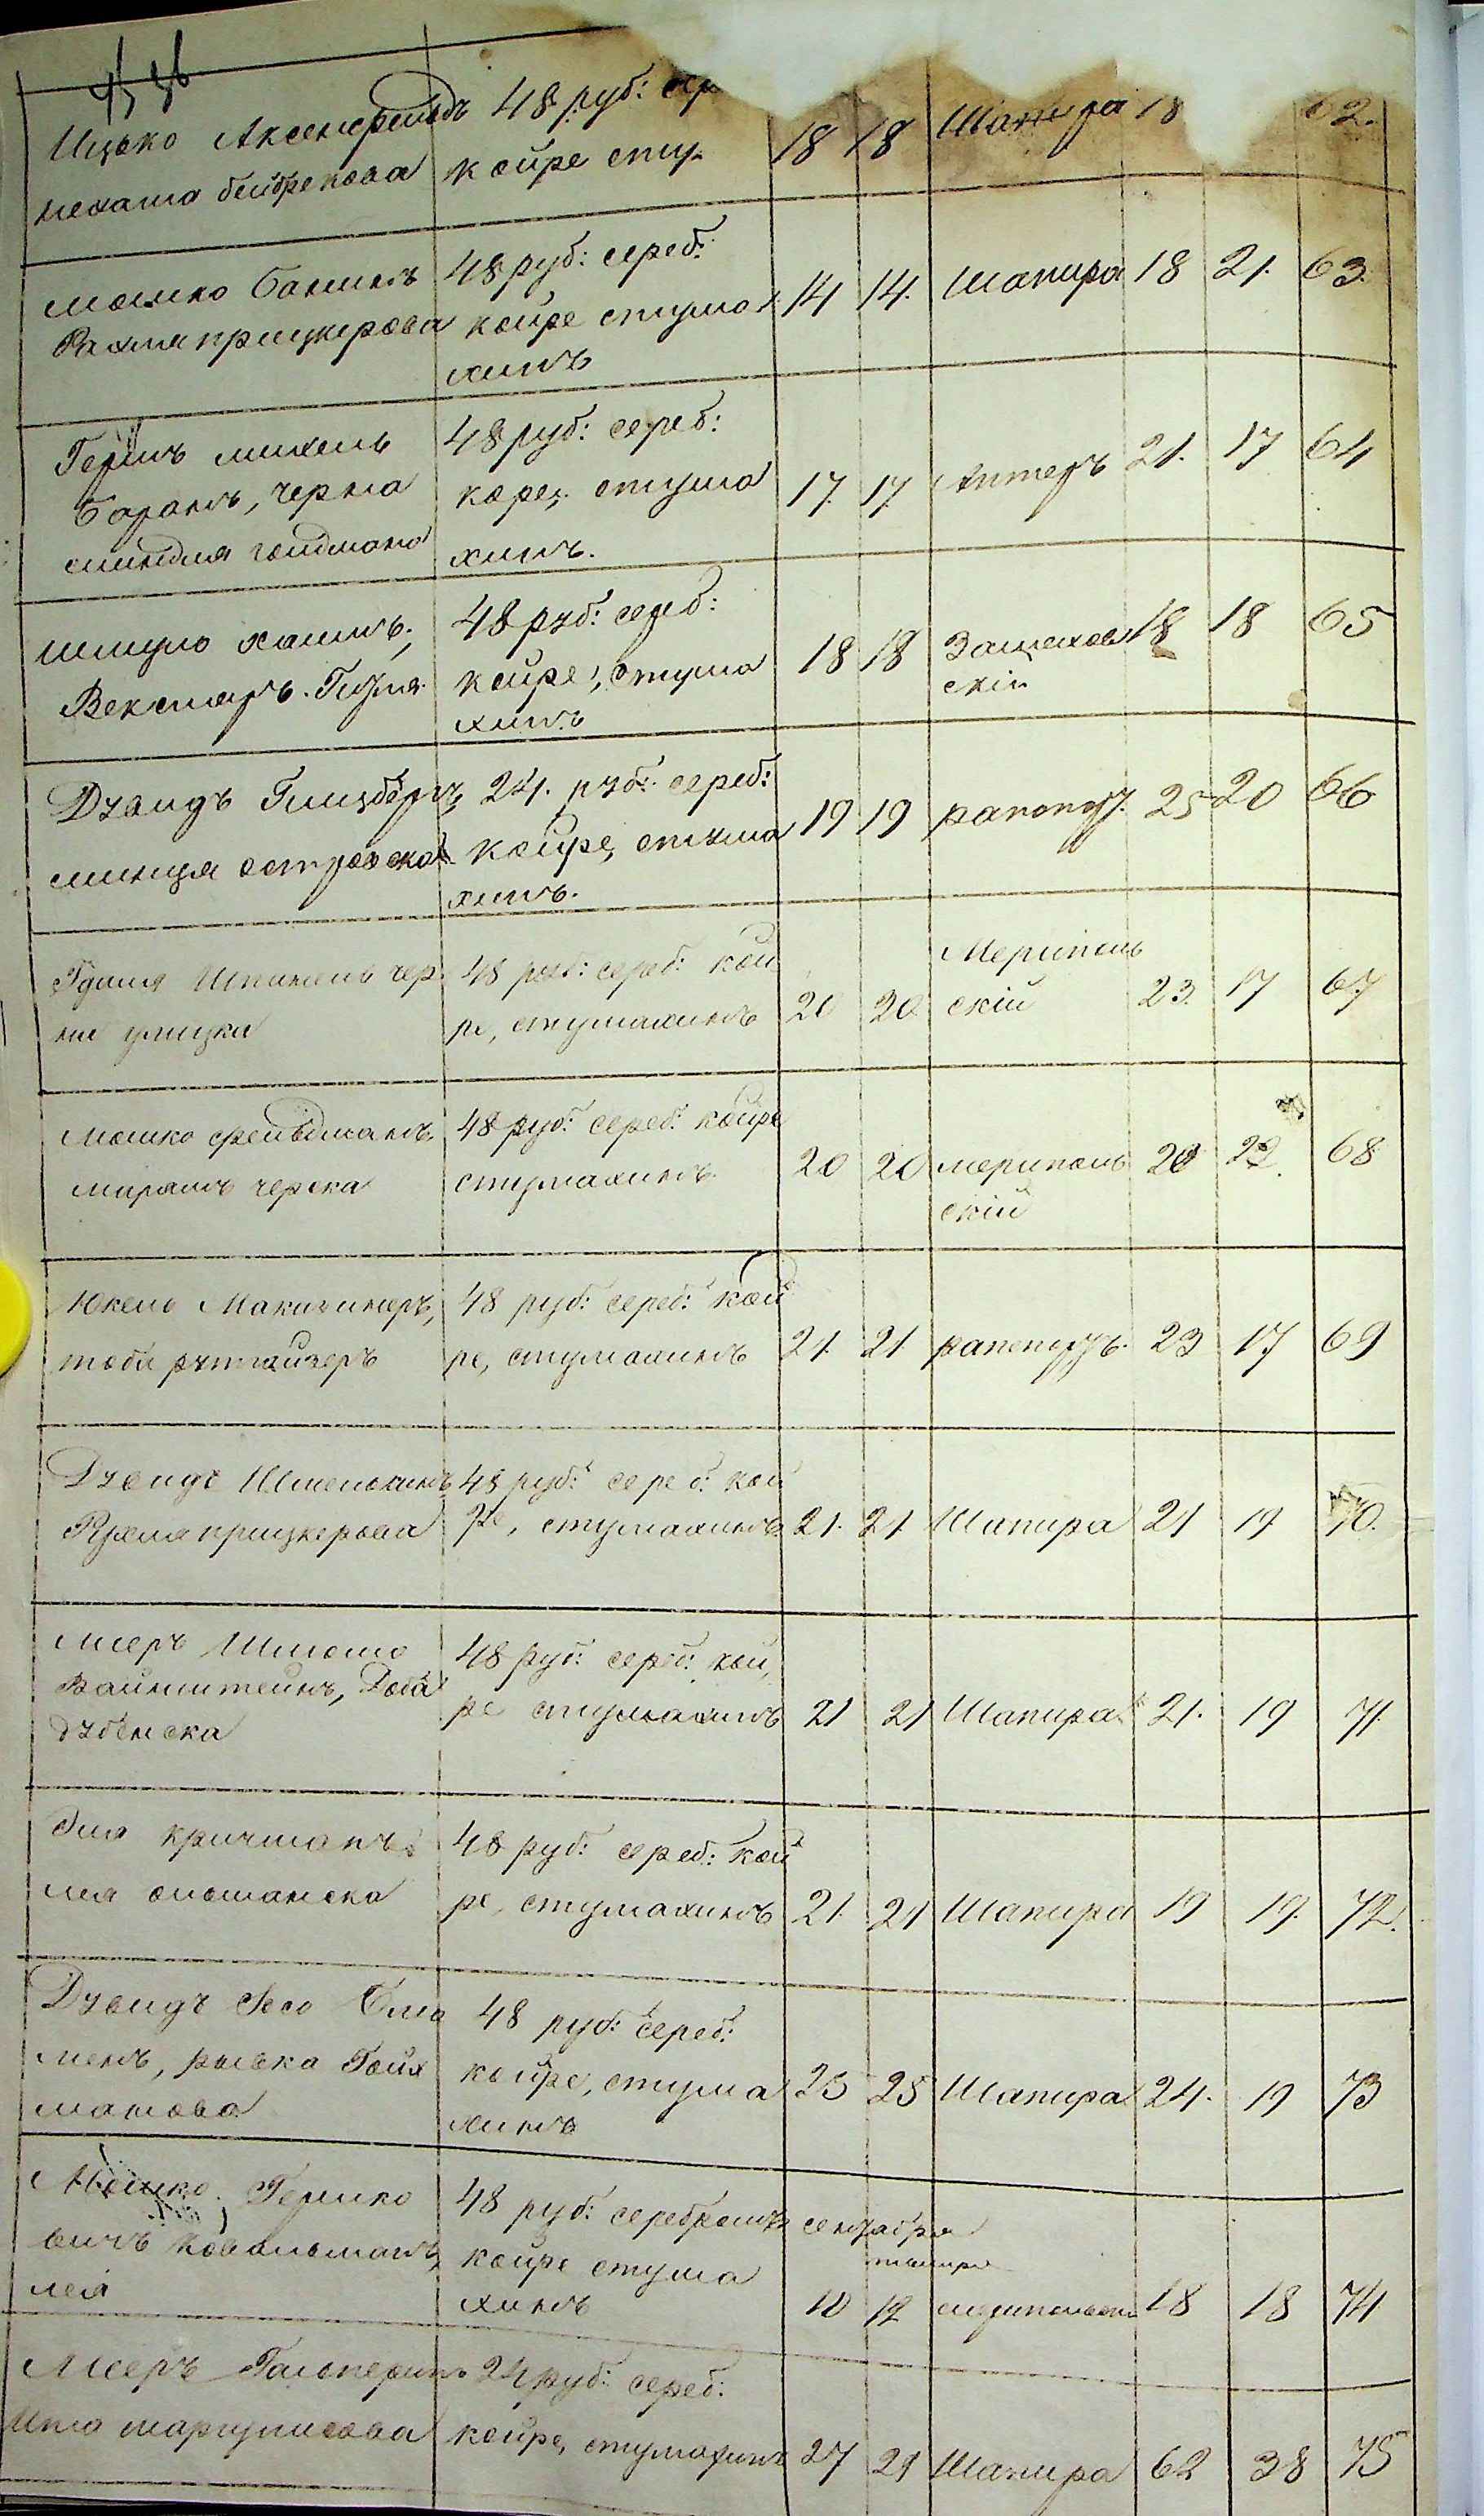 Ицько Аксенфельдъ 48 руб: сер
койре сту
18 18 Шапира 18 62.
мошко Банинъ
Рахля прицкерова
48 руб: сереб:
койре стума
хинъ
14 14. Шапира 18 21. 63.
Гершъ михель
Баранъ, черна
гойдмана
48 руб: сереб:
стума
хинъ.
17 17 Аптеръ 21. 17 64
шмуло хаимъ,
Векслеръ.
48 руб: сереб:
койре, стума
хинъ
18 18
скій
18 18 65
Дувидъ Гинзбергъ
островска
24. руб: сереб:
койре, стума
хинъ.
19 19 рапопор. 25 20 66
чер
ни улицки
48 руб: сереб: кой
ре, стумахинъ
20 20 Мерипель
скій
23. 17 67
мошко фельдманъ
мирямъ черска
48 руб: сереб: койре
стумахинъ
20 20 мерипель
скій
20 22. 68
Юкель
48 руб: сереб: кой
ре, стумахинъ
21. 21 рапопортъ. 23 17 69
Дувидъ
Рухля прицкерова
48 руб: сереб: кой
ре, стумахинъ
21. 21 Шапира 21 19 70.
мееръ Шлиомо
Вайнштейнъ, Доба
дубенска
48 руб: сереб: кой,
ре стумахинъ
21 21 Шапира 21. 19 71.
Эля кричманъ
лея ольшанска
48 руб: сереб: кой
ре, стумахинъ
21. 21 Шапира 19 19. 72.
Дувидъ
менъ, рывка Гойх
манова
48 руб: сереб:
койре, стума
хинъ
25 25 Шапира 24. 19 73
Мошко Гершко
вичъ Ковальманъ,
лея
48 руб: серебромъ
койре стума
хинъ
сентабря
10 12
18 18 74
Мееръ Гальперинъ
Ита маргулисова
24 руб: сереб:
койре, стумахинъ
27 29 Шапира 62 38 75